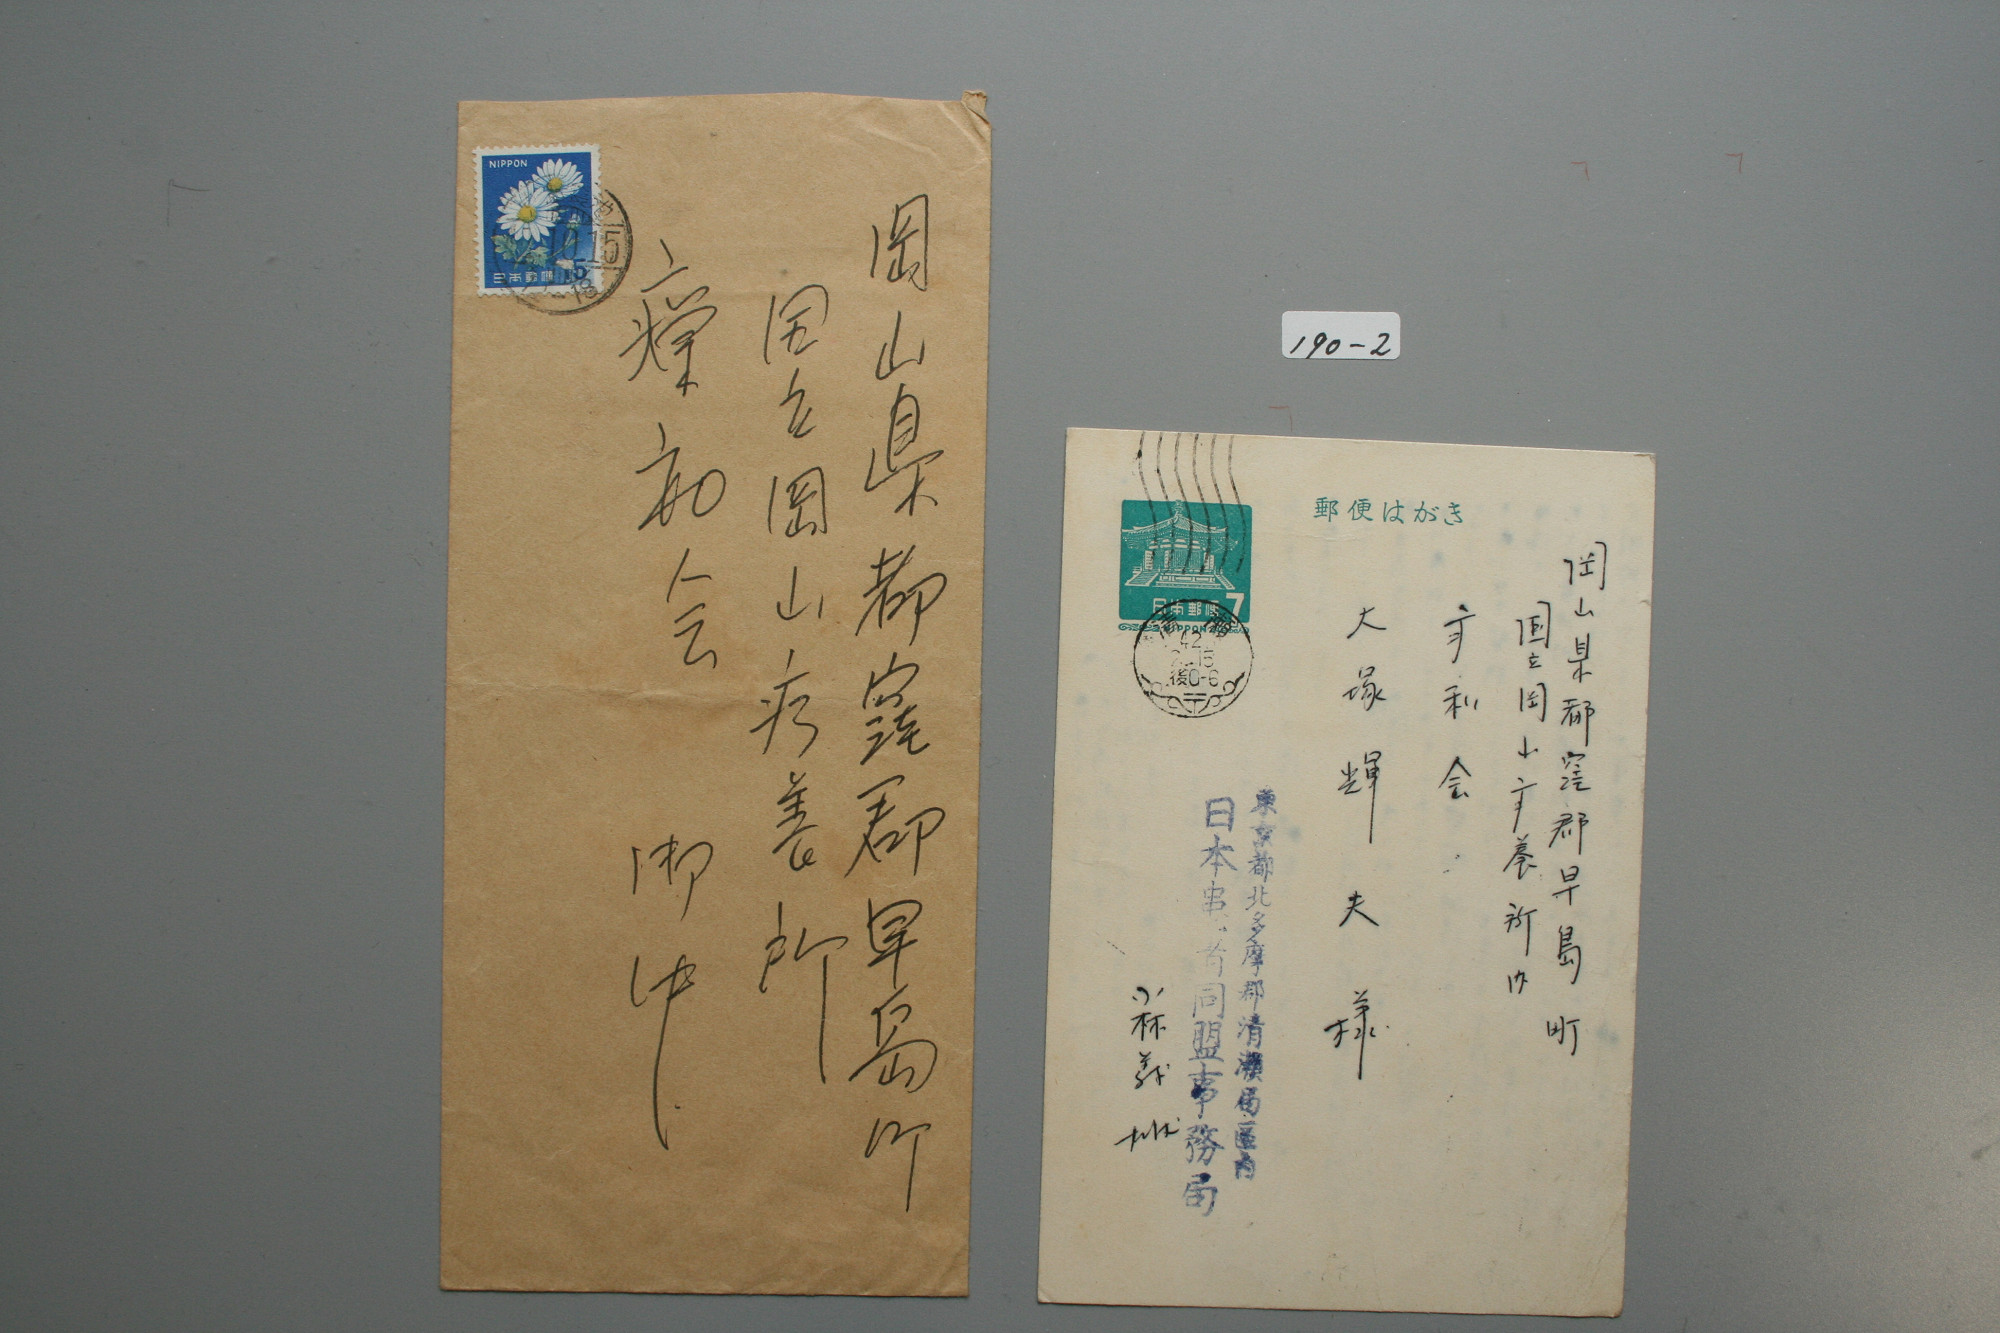 NIPPON
日本郵便
10.15
岡山県都窪郡早島町
国立岡山療養所
療和会 御中
190-2
郵便はがき
日本郵便 7
NIPPON
42
15
後0-6
岡山県都窪郡早島町
国立岡山療養所内
療和会
大塚輝夫様
東京都北多摩郡清瀬局区内
日本患者同盟事務局
小林義